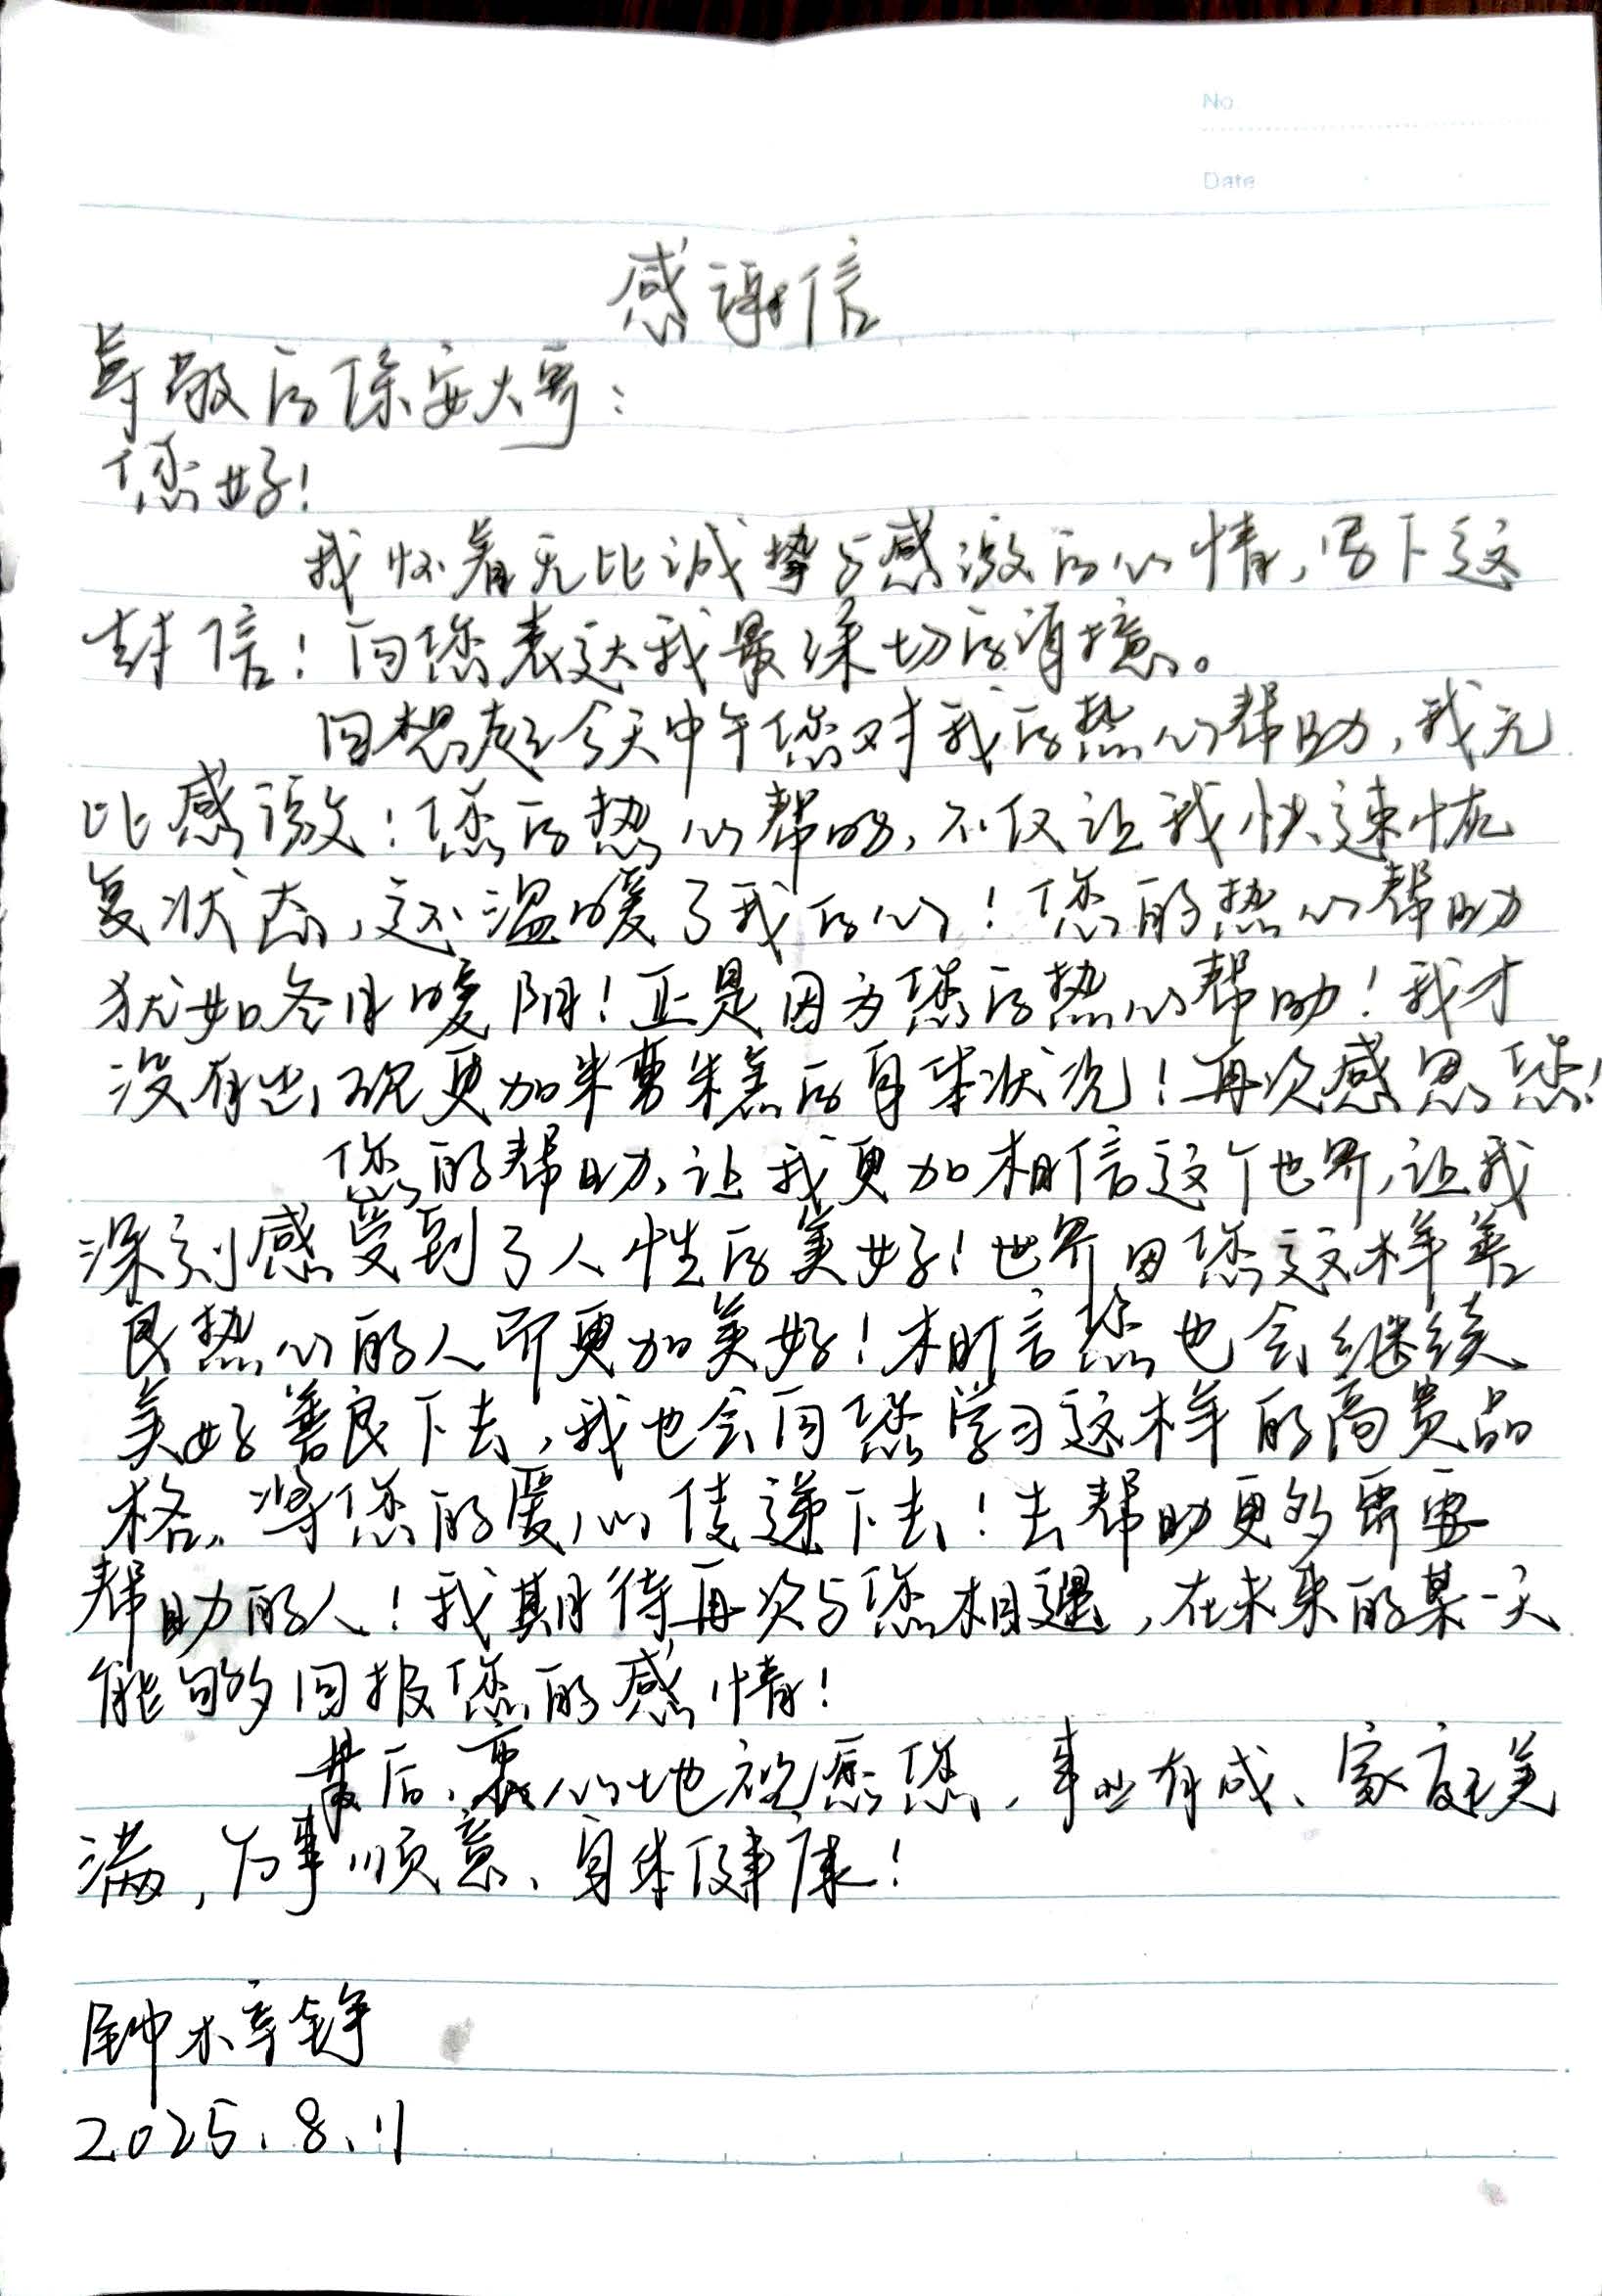 No
Date
感谢信
尊敬的保安大哥：
您好！
我怀着无比诚挚与感激的心情，写下这
封信！向您表达我最深切的谢意。
回想起今天中午您对我的热心帮助，我无
比感激！您的热心帮助，不仅让我快速恢
复状态，还温暖了我的心！您的热心帮助
犹如冬日暖阳！正是因为您的热心帮助！我才
没有出现更加糟糕的身体状况！再次感恩您！
您的帮助，让我更加相信这个世界，让我
深刻感受到了人性的美好！世界因您这样善
良热心的人而更加美好！相信您也会继续
美好善良下去，我也会向您学习这样的高贵品
格，将您的爱心传递下去！去帮助更多需要
帮助的人！我期待再次与您相遇，在未来的某一天
能够回报您的感情！
最后，衷心地祝愿您，事业有成、家庭美
满，万事顺意、身体健康！
钟木辛铮
2025.8.11